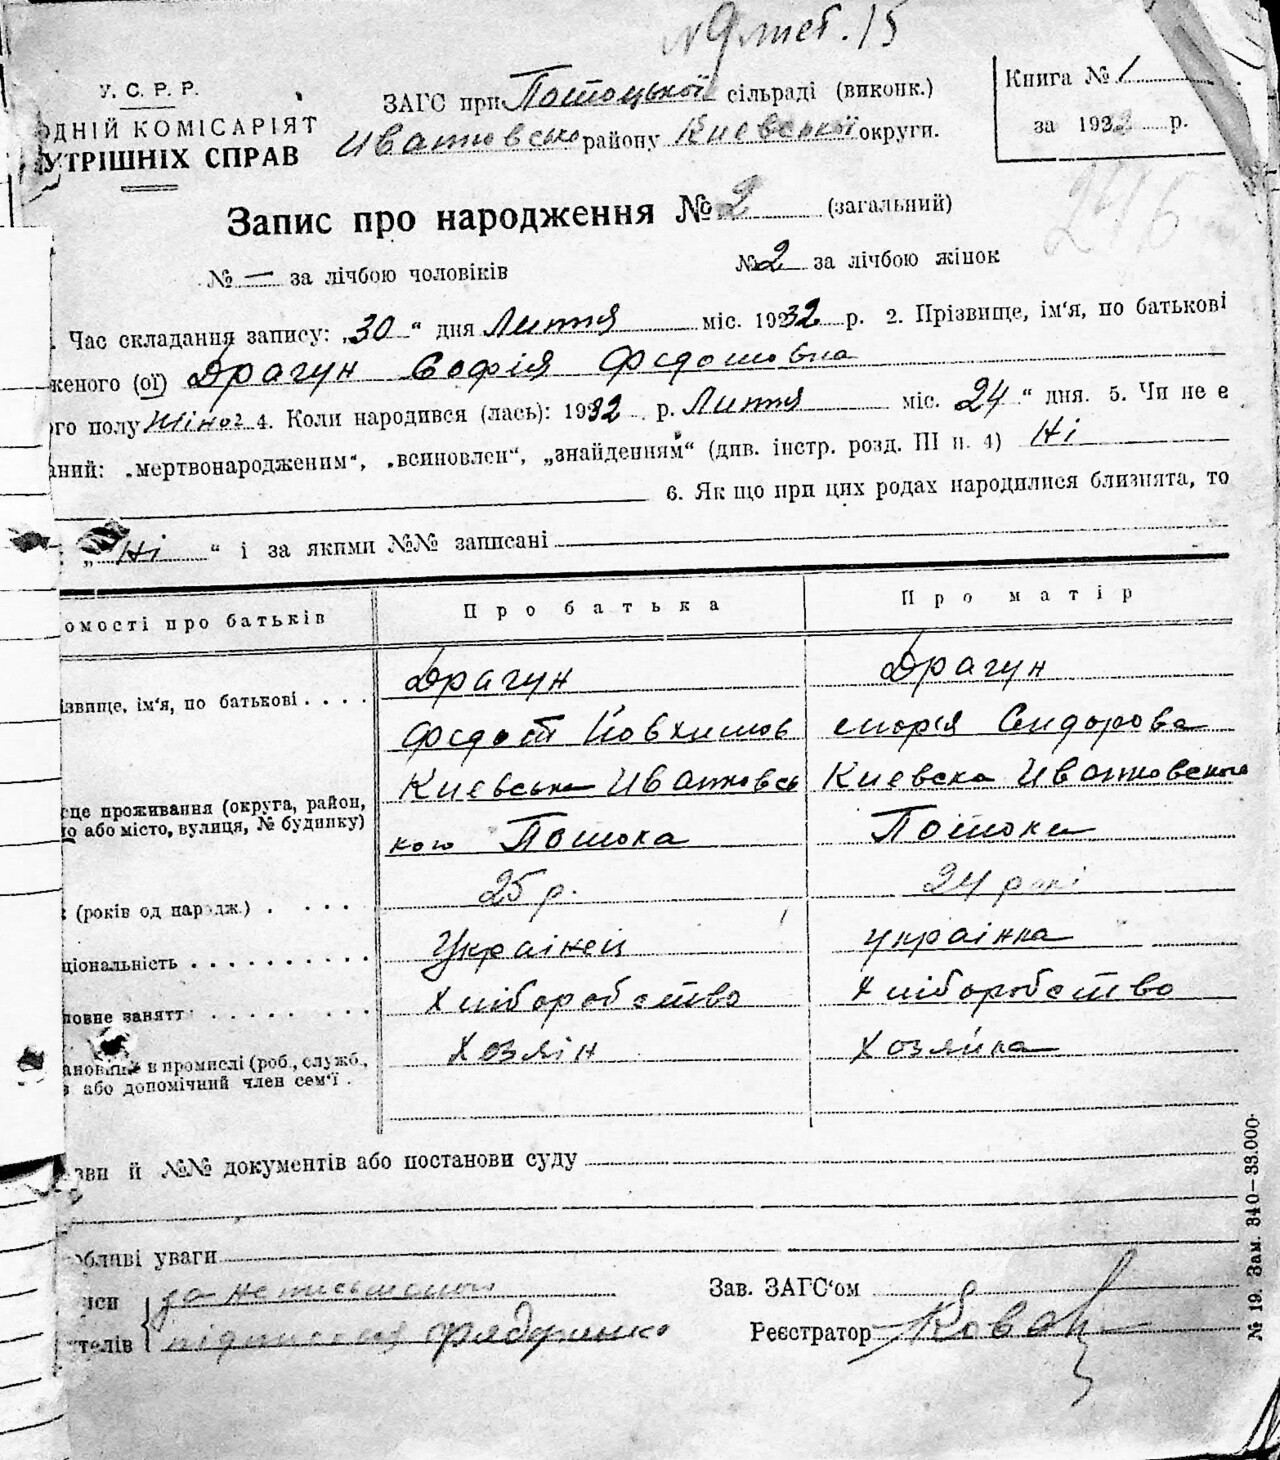 № 9 лют. 15
У. С. Р. Р.
ОДНІЙ КОМІСАРІЯТ
УТРІШНІХ СПРАВ
ЗАГС при Потоцької сільраді (виконк.)
Иванковсько району Киевської округи.
Книга № 1
за 1932 р.
246
Запис про народження № 2 (загальний)
№ — за лічбою чоловіків № 2 за лічбою жінок
. Час складання запису: „30“ дня Лиття міс. 1932 р. 2. Прізвище, ім'я, по батькові
женого (ої) Драгун Софія Федотовна
го полу Жіноч 4. Коли народився (лась): 1932 р. Лиття міс. 24“ дня. 5. Чи не є
аний: „мертвонародженим“, „всиновлен“, „знайденням“ (див. інстр. розд. III п. 4) Ні
6. Як що при цих родах народилися близнята, то
: „Ні“ і за якими №№ записані
омості про батьків Про батька Про матір
ізвище, ім'я, по батькові . . . . Драгун Драгун
Федот Йовхимов марія Сидорова
сце проживання (округа, район, Киевська Иванковсь Киевска Иванковского
о або місто, вулиця, № будинку) кого Потока Потоки
: (років од народж.) . . . . 25 р. 24 рокі
ціональність . . . . . . . . . . Українец українка
ловне занятт . . . . . . . . Хліборобство Хліборобство
ановище в промислі (роб., служб., Хозяін Хозяйка
з або допомічний член сем'ї .
зви й №№ документів або постанови суду
обливі уваги
иси за неписьменого Зав. ЗАГС'ом
телів підписався Реєстратор Ковал
№ 19. Зам. 340—33.000.